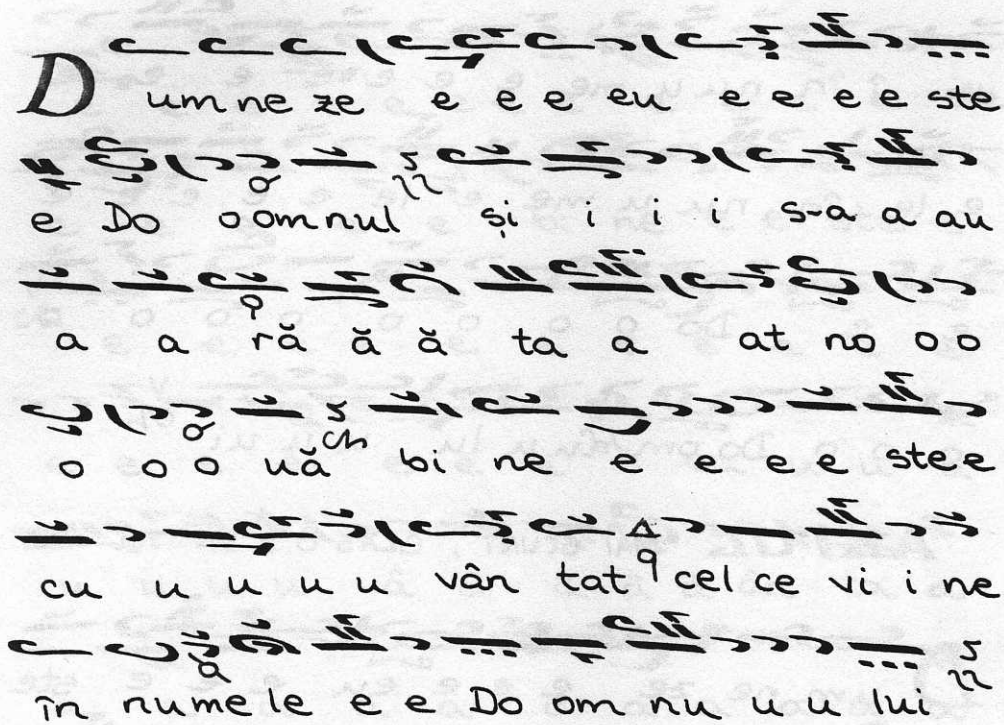 Dum ne ze e e e eu e e e e ste
e Do o om nul și i i i s-a a au
a a ră ă ă ta a at no o o
o o o uă bi ne e e e e ste e
cu u u u u vân tat cel ce vi i ne
în nu me le e e Do om nu u u lui